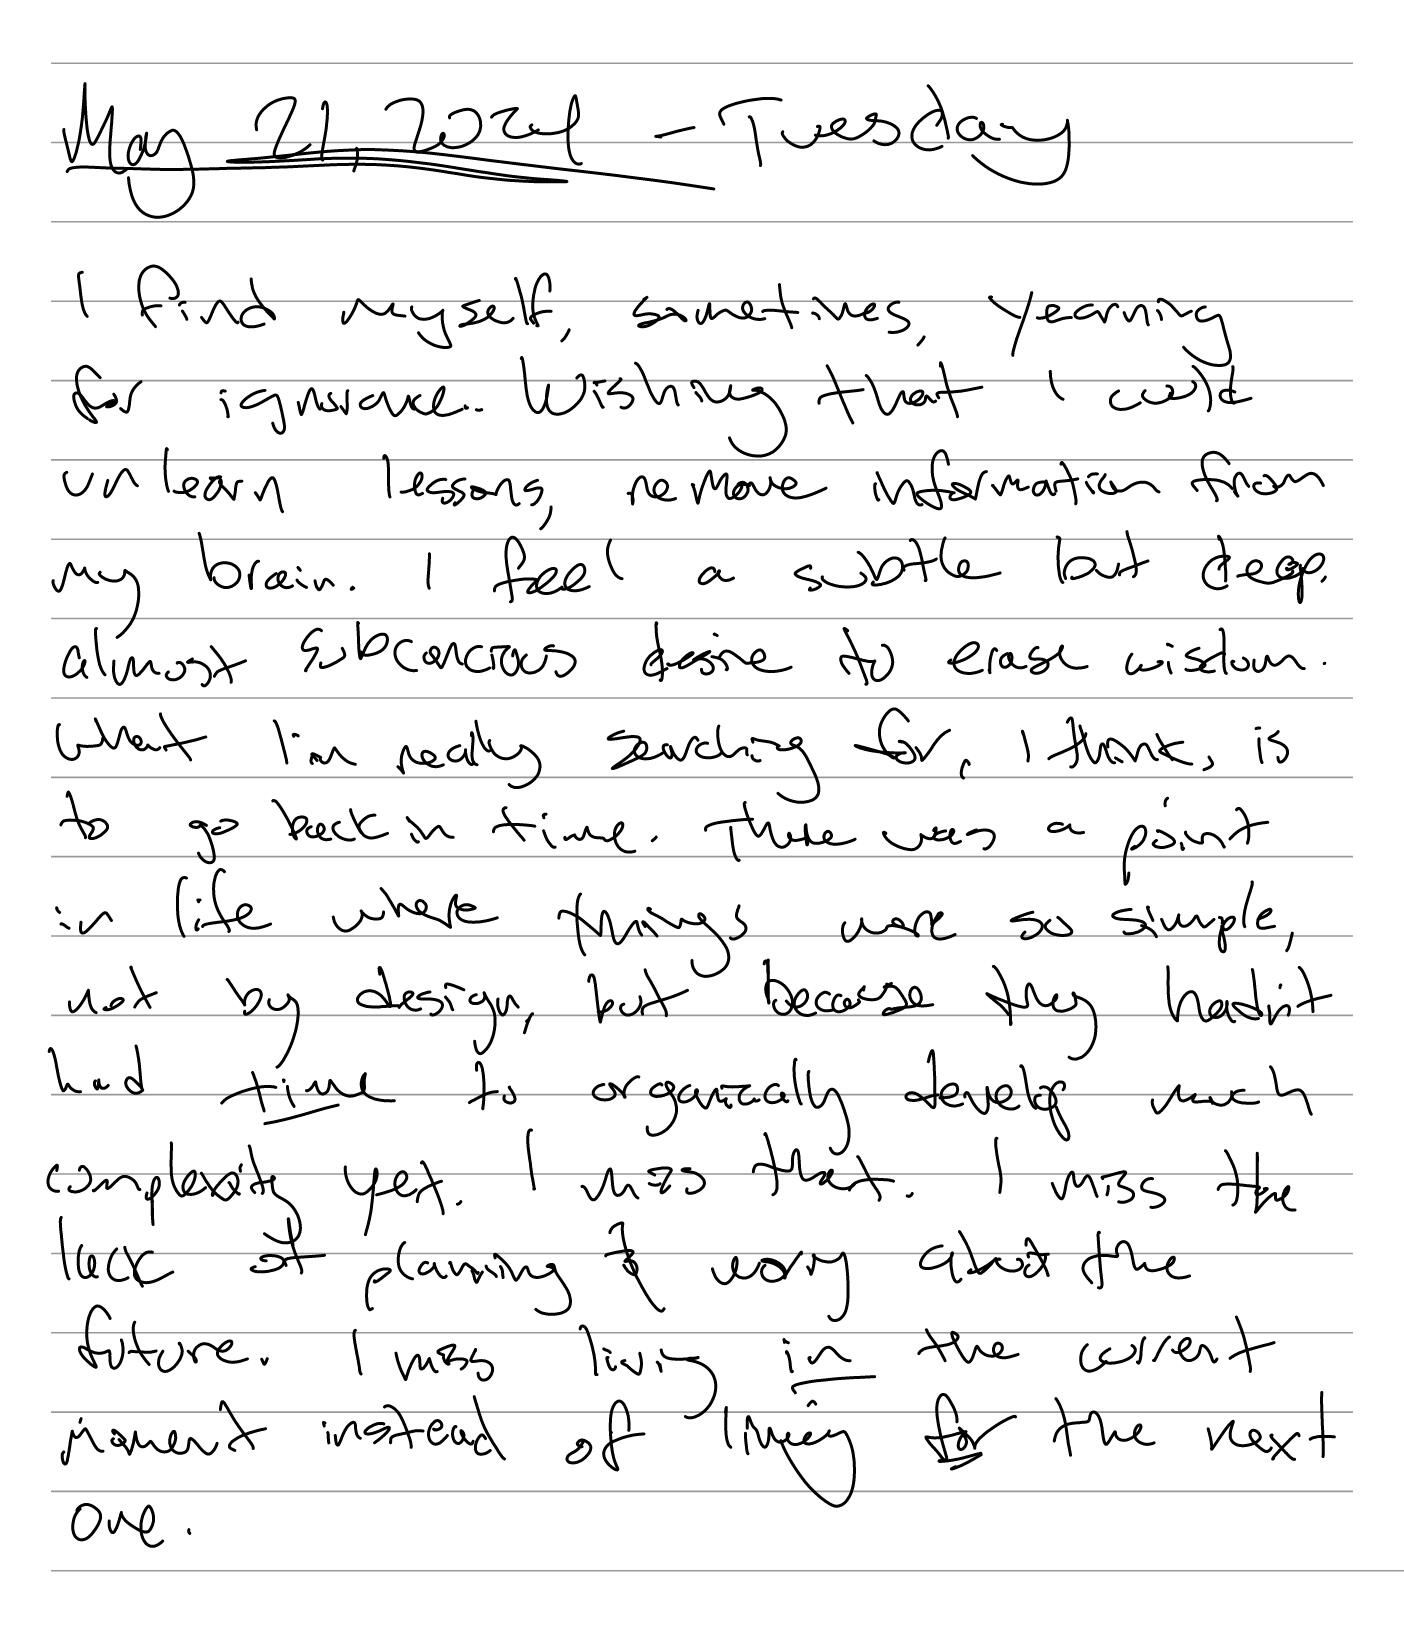 May 21, 2024 - Tuesday
I find myself, sometimes, yearning
for ignorance.. Wishing that I could
unlearn lessons, remove information from
my brain. I feel a subtle but deep,
almost subconcious desire to erase wisdom.
What I'm really searching for, I think, is
to go back in time. There was a point
in life where things were so simple,
not by design, but because they hadn't
had time to organically develop much
complexity yet. I miss that. I miss the
lack of planning & worry about the
future. I miss living in the current
moment instead of living for the next
one.